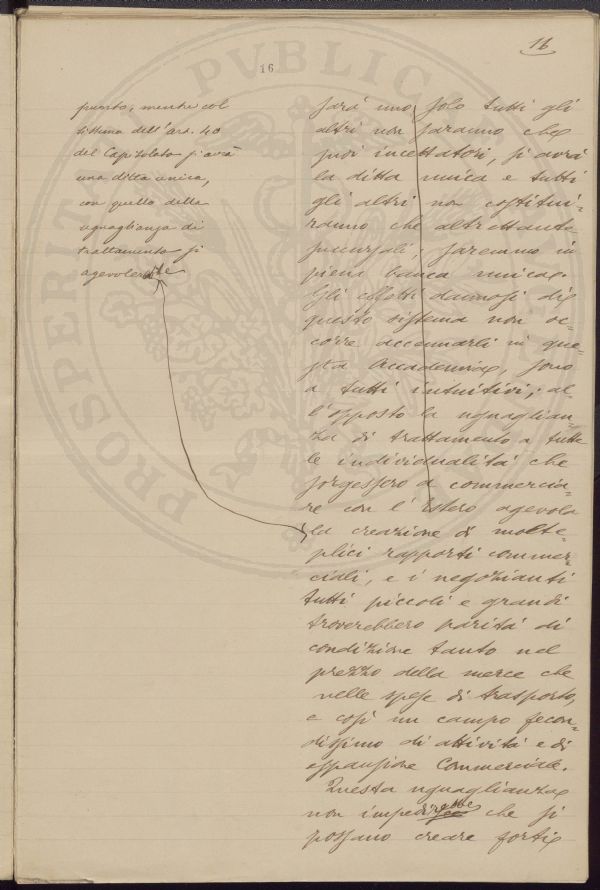 16
16
punto; mentre col
sistema dell'art. 40
del Capitolato si avrà
una ditta unica,
con quello della
uguaglianza di
trattamento si
agevolerebbe
sarà uno solo tutti gli
altri non saranno che
suoi incettatori, si avrà
la ditta unica e tutti
gli altri non costitui-
ranno che altrettante
succursali; saremmo in
piena banca unica.
Gli effetti dannosi di
questo sistema non oc-
corre accennarli in que-
sta Accademia, sono
a tutti intuitivi; al-
l'opposto la uguaglian-
za di trattamento a tutte
le individualità che
sorgessero a commercia-
re con l'Estero agevola
la creazione di molte-
plici rapporti commer-
ciali, e i negozianti
tutti piccoli e grandi
troverebbero parità di
condizione tanto nel
prezzo della merce che
nelle spese di trasporto,
e così un campo fecon-
dissimo di attività e di
espansione Commerciale.
Questa uguaglianza
non impedirebbe che si
possano creare forti
PROSPERITATI PVBLICAE